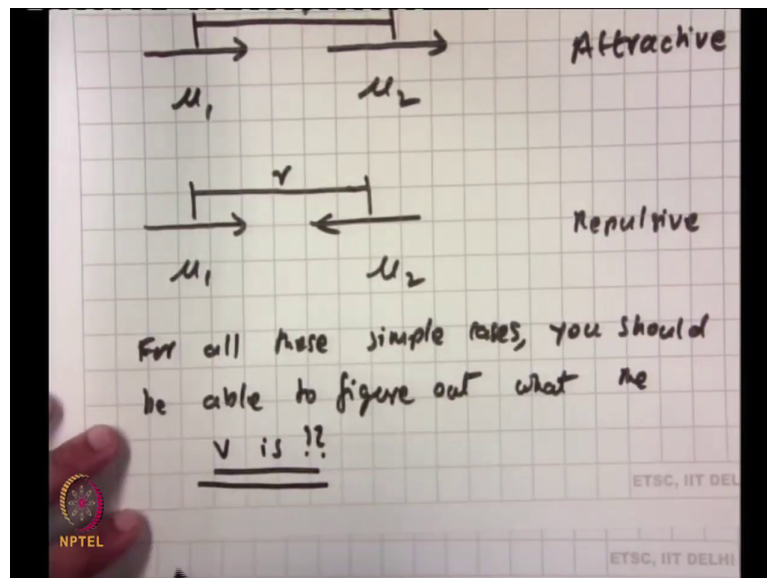 Attractive
μ₁ μ₂
r
Repulsive
μ₁ μ₂
For all these simple cases, you should
be able to figure out what the
V is !?
ETSC, IIT DEL
NPTEL
ETSC, IIT DELHI